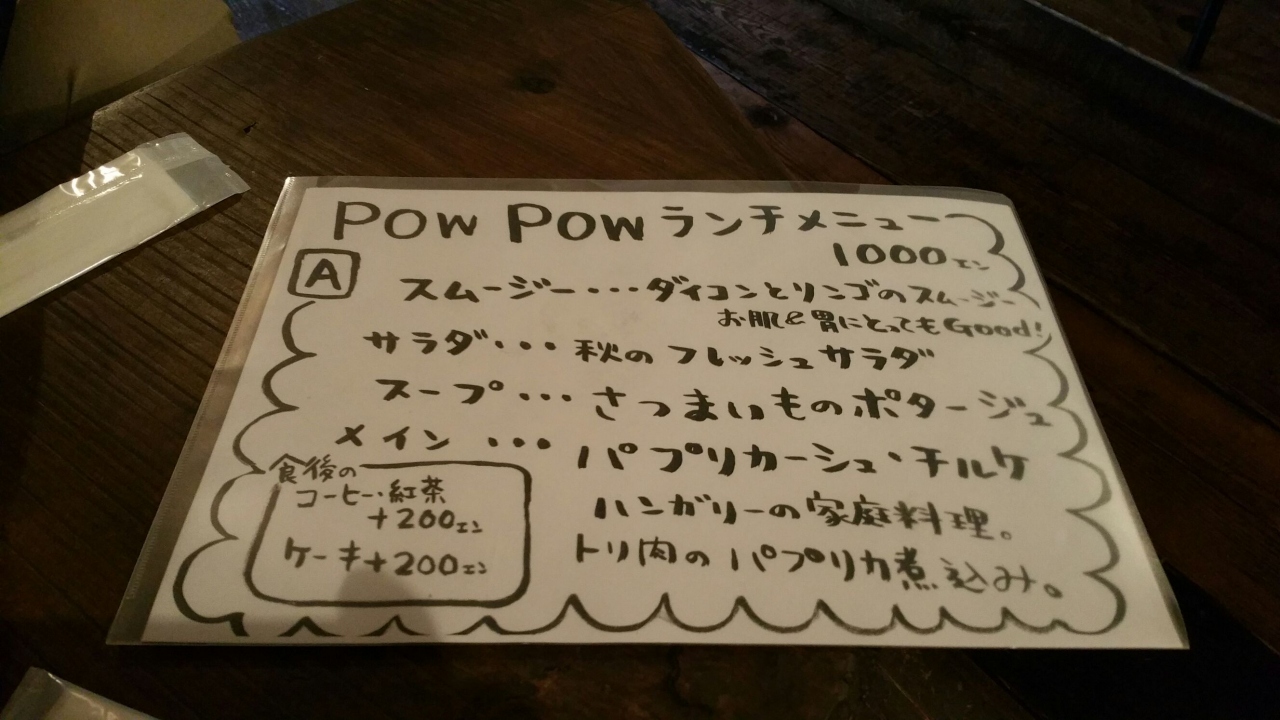 POW POWランチメニュー
1000エン
A
スムージー・・・ダイコンとリンゴのスムージー
お肌と胃にとってもGood!
サラダ・・・秋のフレッシュサラダ
スープ・・・さつまいものポタージュ
メイン・・・パプリカーシュ・チルケ
ハンガリーの家庭料理。
トリ肉のパプリカ煮込み。
食後の
コーヒー・紅茶
+200エン
ケーキ+200エン